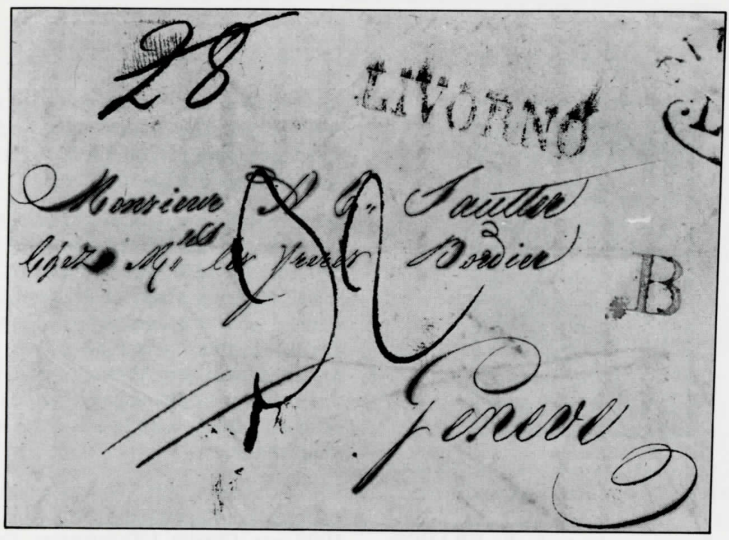 28
LIVORNO
Monsieur A Sautter
Chez Mrs les freres Bordier
32
B
Geneve